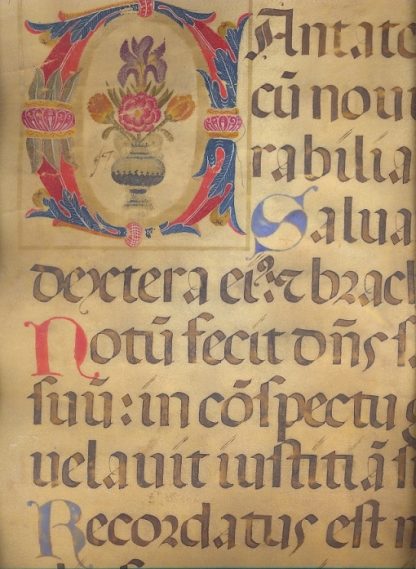 CAntate
cū nou
rabilia
Salua
dextera eiꝰ: ⁊ brach
Notū fecit dn̄s s
suū: in cōspectu g
uelauit iustitiā s
Recordatus est m